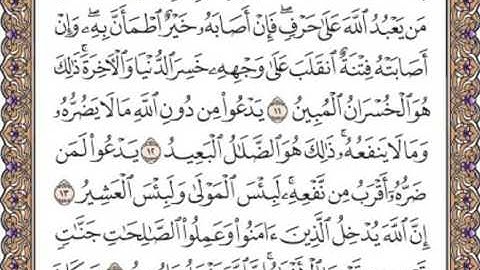 مَن يَعْبُدُ ٱللَّهَ عَلَىٰ حَرْفٍۖ فَإِنْ أَصَابَهُۥ خَيْرٌ ٱطْمَأَنَّ بِهِۦۖ وَإِنْ
أَصَابَتْهُ فِتْنَةٌ ٱنقَلَبَ عَلَىٰ وَجْهِهِۦ خَسِرَ ٱلدُّنْيَا وَٱلْأٓخِرَةَۚ ذَٰلِكَ
هُوَ ٱلْخُسْرَانُ ٱلْمُبِينُ ١١ يَدْعُوا۟ مِن دُونِ ٱللَّهِ مَا لَا يَضُرُّهُۥ
وَمَا لَا يَنفَعُهُۥۚ ذَٰلِكَ هُوَ ٱلضَّلَٰلُ ٱلْبَعِيدُ ١٢ يَدْعُوا۟ لَمَن
ضَرُّهُۥٓ أَقْرَبُ مِن نَّفْعِهِۦۚ لَبِئْسَ ٱلْمَوْلَىٰ وَلَبِئْسَ ٱلْعَشِيرُ ١٣
إِنَّ ٱللَّهَ يُدْخِلُ ٱلَّذِينَ ءَامَنُوا۟ وَعَمِلُوا۟ ٱلصَّٰلِحَٰتِ جَنَّٰتٍ